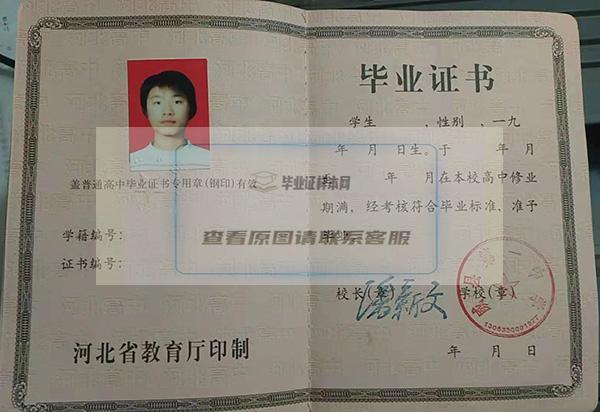 盖普通高中毕业证书专用章(钢印)有效
学籍编号:
证书编号:
河北省教育厅印制
毕业证书
学生 ,性别 ,一九
年 月 日生。于 年 月
年 月在本校高中修业
期满,经考核符合毕业标准,准予
校长(章) 学校(章)
年 月 日
毕业证样本网
查看原图请联系客服